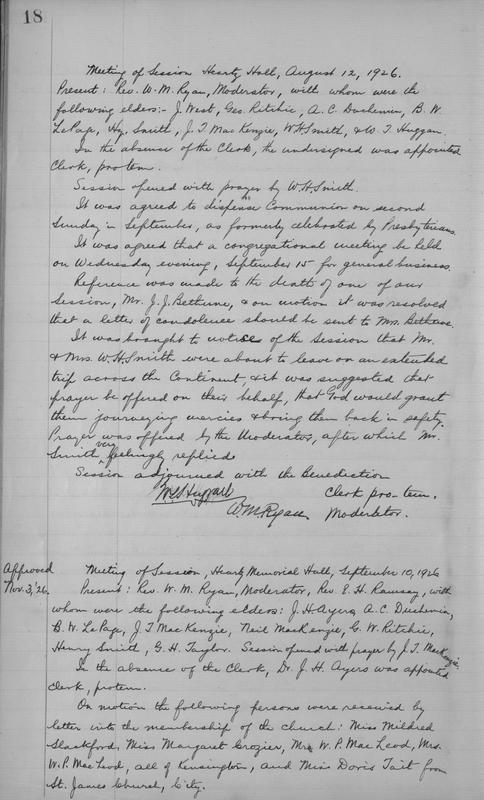 18
Meeting of Session Heartz Hall, August 12, 1926.
Present: Rev. W. M. Ryan, Moderator, with whom were the
following elders:- J. West, Geo. Ritchie, A. C. Duchemin, B. W.
LePage, Hy. Smith, J. T. MacKenzie, W. H. Smith, & W. T. Huggan.
In the absence of the Clerk, the undersigned was appointed
Clerk, pro tem.
Session opened with prayer by W. H. Smith.
It was agreed to dispense Communion on second
Sunday in September, as formerly celebrated by Presbyterians.
It was agreed that a congregational meeting be held
on Wednesday evening, September 15 for general business.
Reference was made to the death of one of our
Session, Mr. J. J. Bethune, & on motion it was resolved
that a letter of condolence should be sent to Mrs. Bethune.
It was brought to notice of the Session that Mr.
& Mrs. W. H. Smith were about to leave on an extended
trip across the Continent, & it was suggested that
prayer be offered on their behalf, that God would grant
them journeying mercies & bring them back in safety.
Prayer was offered by the Moderator, after which Mr.
Smith very feelingly replied.
Session adjourned with the Benediction
Clerk pro-tem.
W. M. Ryan. Moderator.
Approved
Nov. 3, '26.
Meeting of Session, Heartz Memorial Hall, September 10, 1926
Present: Rev. W. M. Ryan, Moderator, Rev. E. H. Ramsay, with
whom were the following elders: J. H. Ayers, A. C. Duchemin,
B. W. LePage, J. T. MacKenzie, Neil MacKenzie, G. W. Ritchie,
Henry Smith, G. H. Taylor. Session opened with prayer by J. T. MacKenzie.
In the absence of the Clerk, Dr. J. H. Ayers was appointed
Clerk, protem.
On motion the following persons were received by
letter into the membership of the church: Miss Mildred
Slackford, Miss Margaret Crozier, Mr. W. P. MacLeod, Mrs.
W. P. MacLeod, all of Kensington, and Miss Doris Tait from
St. James Church, City.